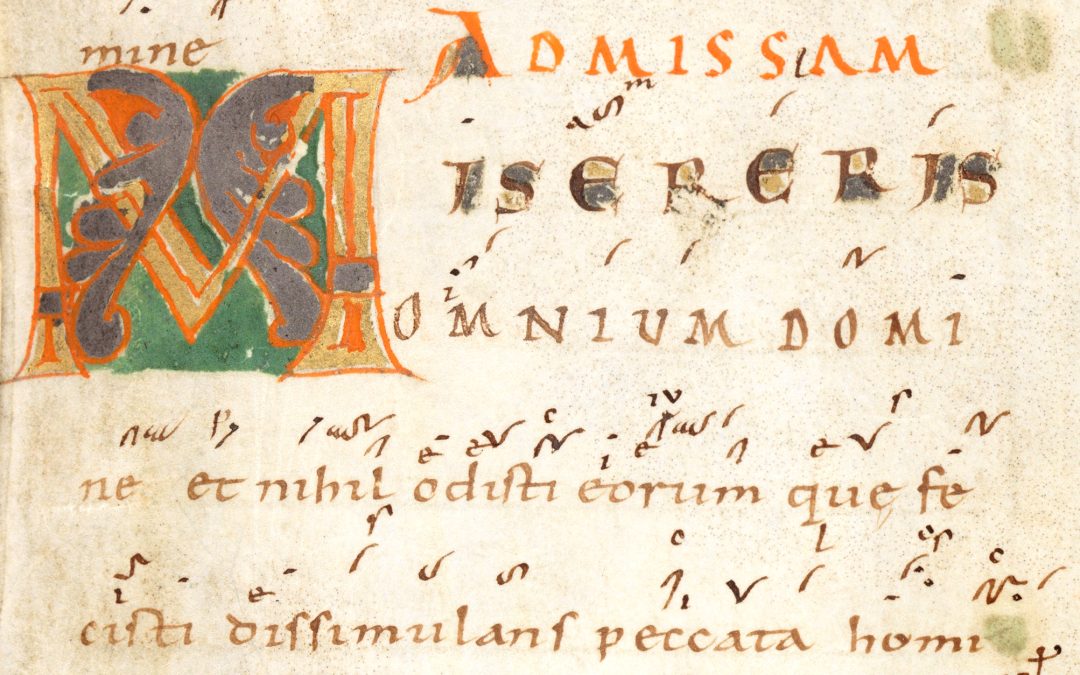 mine
ADMISSAM
MISERERIS
OMNIUM DOMI
ne et nihil odisti eorum quę fe
cisti dissimulans peccata homi